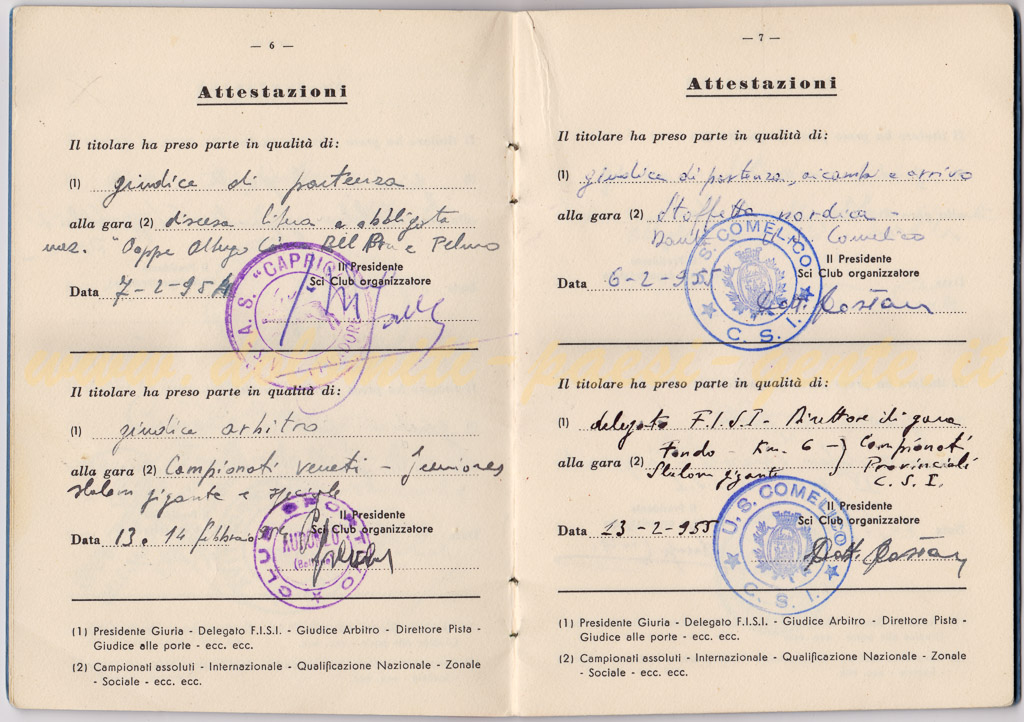 — 6 —
Attestazioni
Il titolare ha preso parte in qualità di:
(1) giudice di partenza
alla gara (2) discesa libera e obbligata
naz. "Coppe Albergo Pelmo
Il Presidente
Data 7-2-954 Sci Club organizzatore
S.A.S. "CAPRIOLI
Il titolare ha preso parte in qualità di:
(1) giudice arbitro
alla gara (2) Campionati veneti - Juniores
slalom gigante e speciale
Il Presidente
Data 13 e 14 febbraio Sci Club organizzatore
CLUB
(1) Presidente Giuria - Delegato F.I.S.I. - Giudice Arbitro - Direttore Pista -
Giudice alle porte - ecc. ecc.
(2) Campionati assoluti - Internazionale - Qualificazione Nazionale - Zonale
- Sociale - ecc. ecc.
— 7 —
Attestazioni
Il titolare ha preso parte in qualità di:
(1) giudice di partenza, e arrivo
alla gara (2) Staffetta nordica -
Comelico
Il Presidente
Data 6-2-955 Sci Club organizzatore
U.S. COMELICO
C.S.I.
Dott.
Il titolare ha preso parte in qualità di:
(1) delegato F.I.S.I - Direttore di gara
alla gara (2) Fondo - Km. 6 - Campionati
Slalom gigante Provinciali
C.S.I.
Il Presidente
Data 13-2-955 Sci Club organizzatore
U.S. COMELICO
C.S.I.
Dott.
(1) Presidente Giuria - Delegato F.I.S.I. - Giudice Arbitro - Direttore Pista -
Giudice alle porte - ecc. ecc.
(2) Campionati assoluti - Internazionale - Qualificazione Nazionale - Zonale
- Sociale - ecc. ecc.